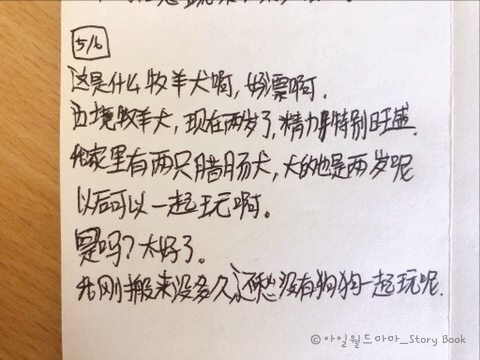 5/6
这是什么牧羊犬啊,好漂啊.
边境牧羊犬,现在两岁了,精力特别旺盛.
我家里有两只腊肠犬,大的也是两岁呢
以后可以一起玩啊。
是吗?太好了。
我刚搬来没多久,还愁没有狗狗一起玩呢.
© 아일월드마마_Story Book